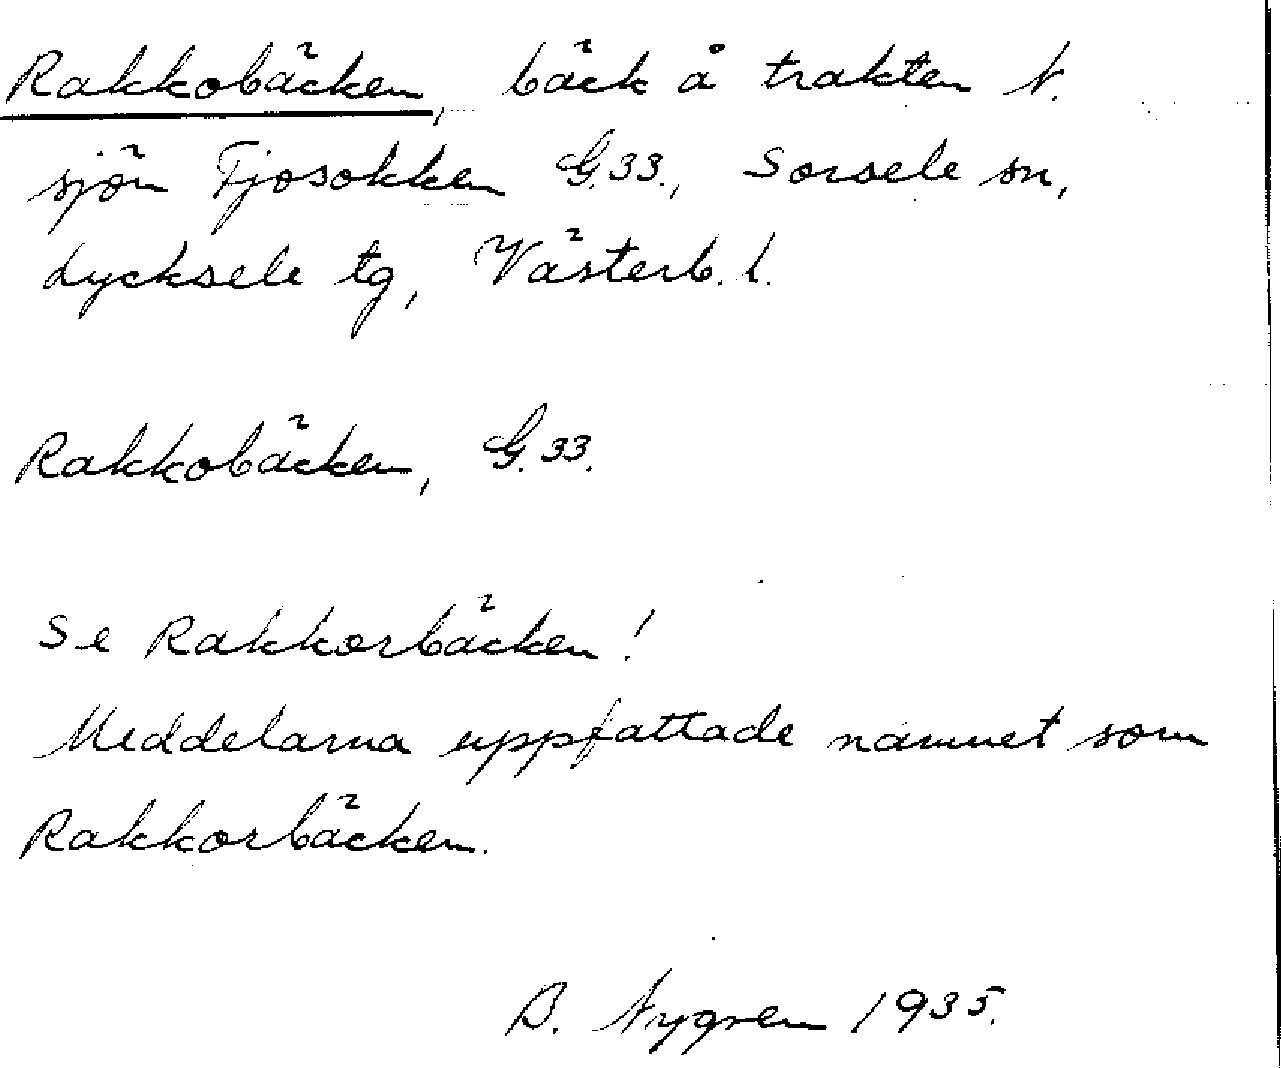 Rakkobäcken, bäck å trakten N.
sjön Tjosokken G.33., Sorsele sn,
Lycksele tg, Västerb. l.
Rakkobäcken, G.33.
Se Rakkorbäcken!
Meddelarna uppfattade namnet som
Rakkorbäcken.
B. Nygren 1935.